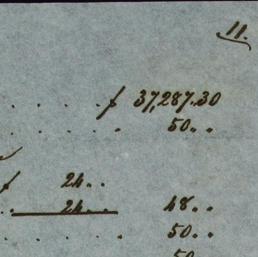 11.
. . . . f 37,287.30
. . . . . 50..
f 24..
. . 24.. 48..
. . . . 50..
50